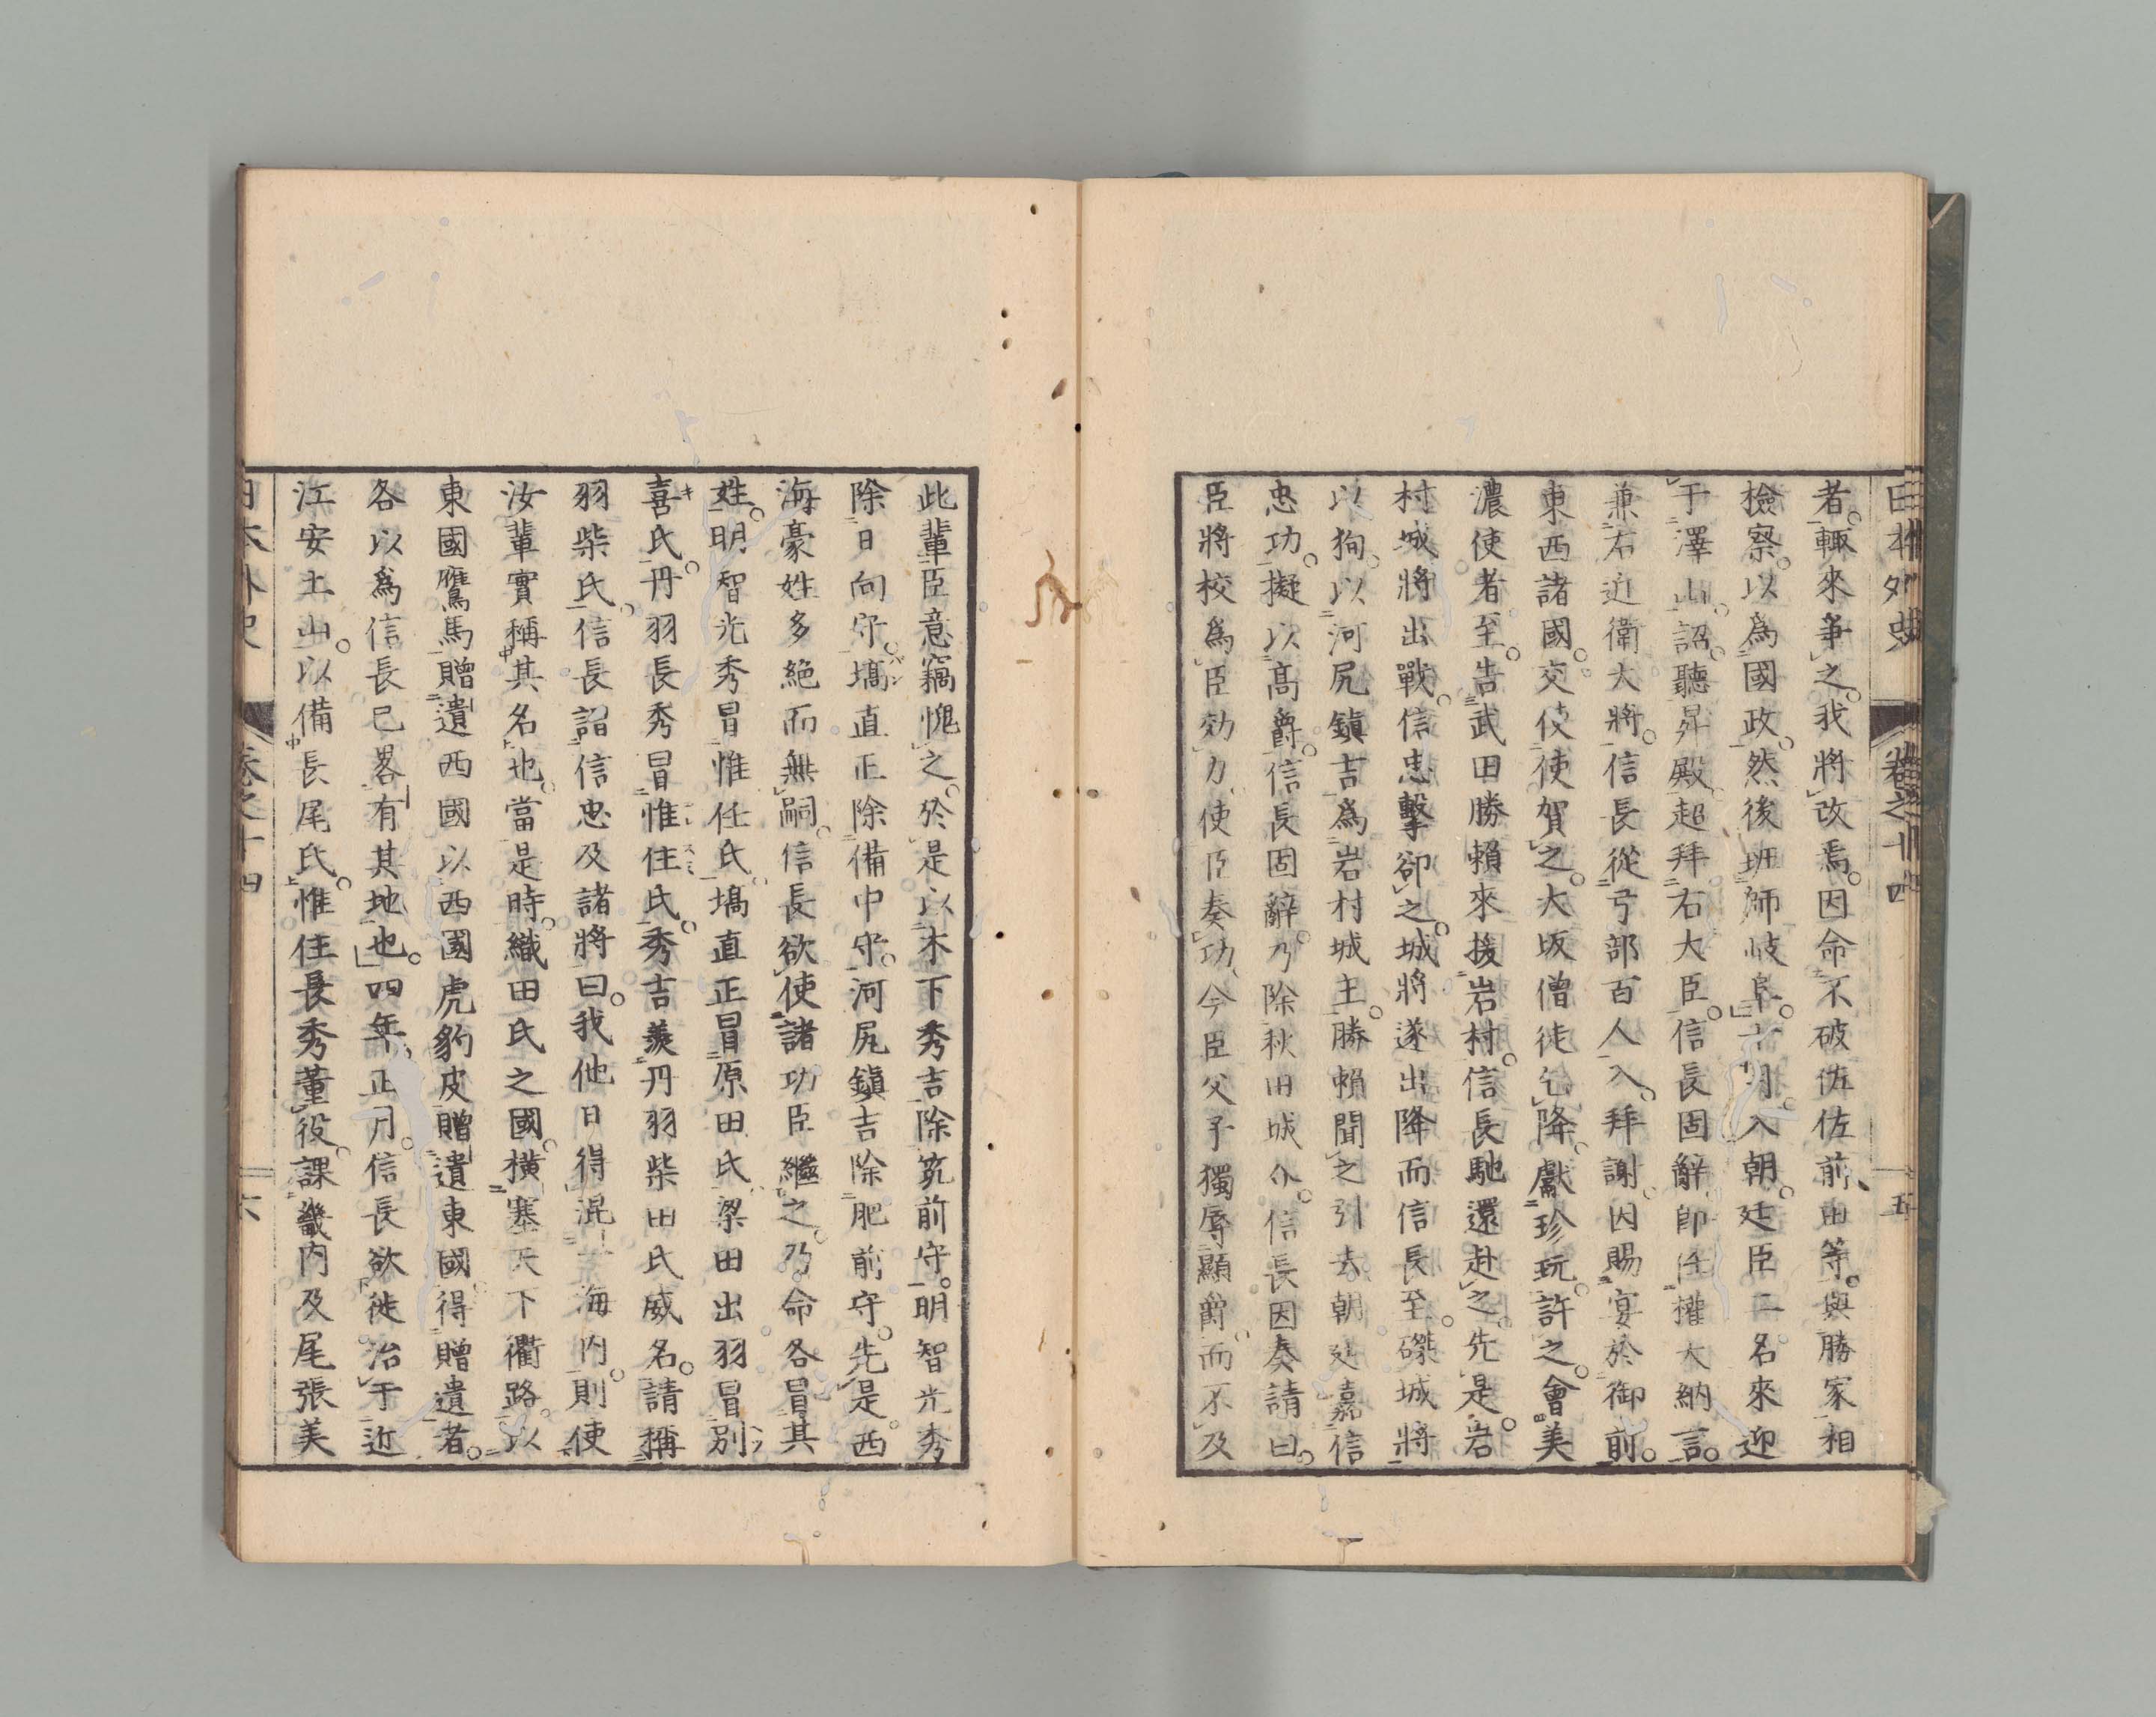 日本外史 卷之十四 五
者。輙來爭之。我將改焉。因命不破佐佐前田等。與勝家相
檢察。以爲國政。然後班師岐阜。十月入朝。廷臣二名來迎
于澤山。詔聽昇殿。超拜右大臣。信長固辭。卽任權大納言。
兼右近衛大將。信長從弓部百人入。拜謝。因賜宴於御前。
東西諸國。交伎使賀之。大坂僧徒乞降。獻珍玩。許之。會美
濃使者至。告武田勝賴來援岩村。信長馳還赴之。先是。岩
村城將出戰。信忠擊卻之。城將遂出降。而信長至。磔城將
以狥。以河尻鎭吉爲岩村城主。勝賴聞之引去。朝廷嘉信
忠功。擬以高爵。信長固辭。乃除秋田城介。信長因奏請曰。
臣將校爲臣効力。使臣奏功。今臣父子獨辱顯爵。而不及
此輩。臣意竊愧之。於是以木下秀吉除筑前守。明智光秀
除日向守。塙直正除備中守。河尻鎭吉除肥前守。先是。西
海豪姓多絶而無嗣。信長欲使諸功臣繼之。乃命各冒其
姓。明智光秀冒惟任氏。塙直正冒原田氏。梁田出羽冒別
喜氏。丹羽長秀冒惟住氏。秀吉羨丹羽柴田氏威名。請稱
羽柴氏。信長詔信忠及諸將曰。我他日得混一海内。則使
汝輩實稱其名也。當是時。織田氏之國。横塞天下衢路。以
東國鷹馬贈遺西國。以西國虎豹皮贈遺東國。得贈遺者。
各以爲信長已畧有其地也。四年。正月。信長欲徙治于近
江安土山。以備長尾氏。惟住長秀董役。課畿内及尾張美
日本外史 卷之十四 六